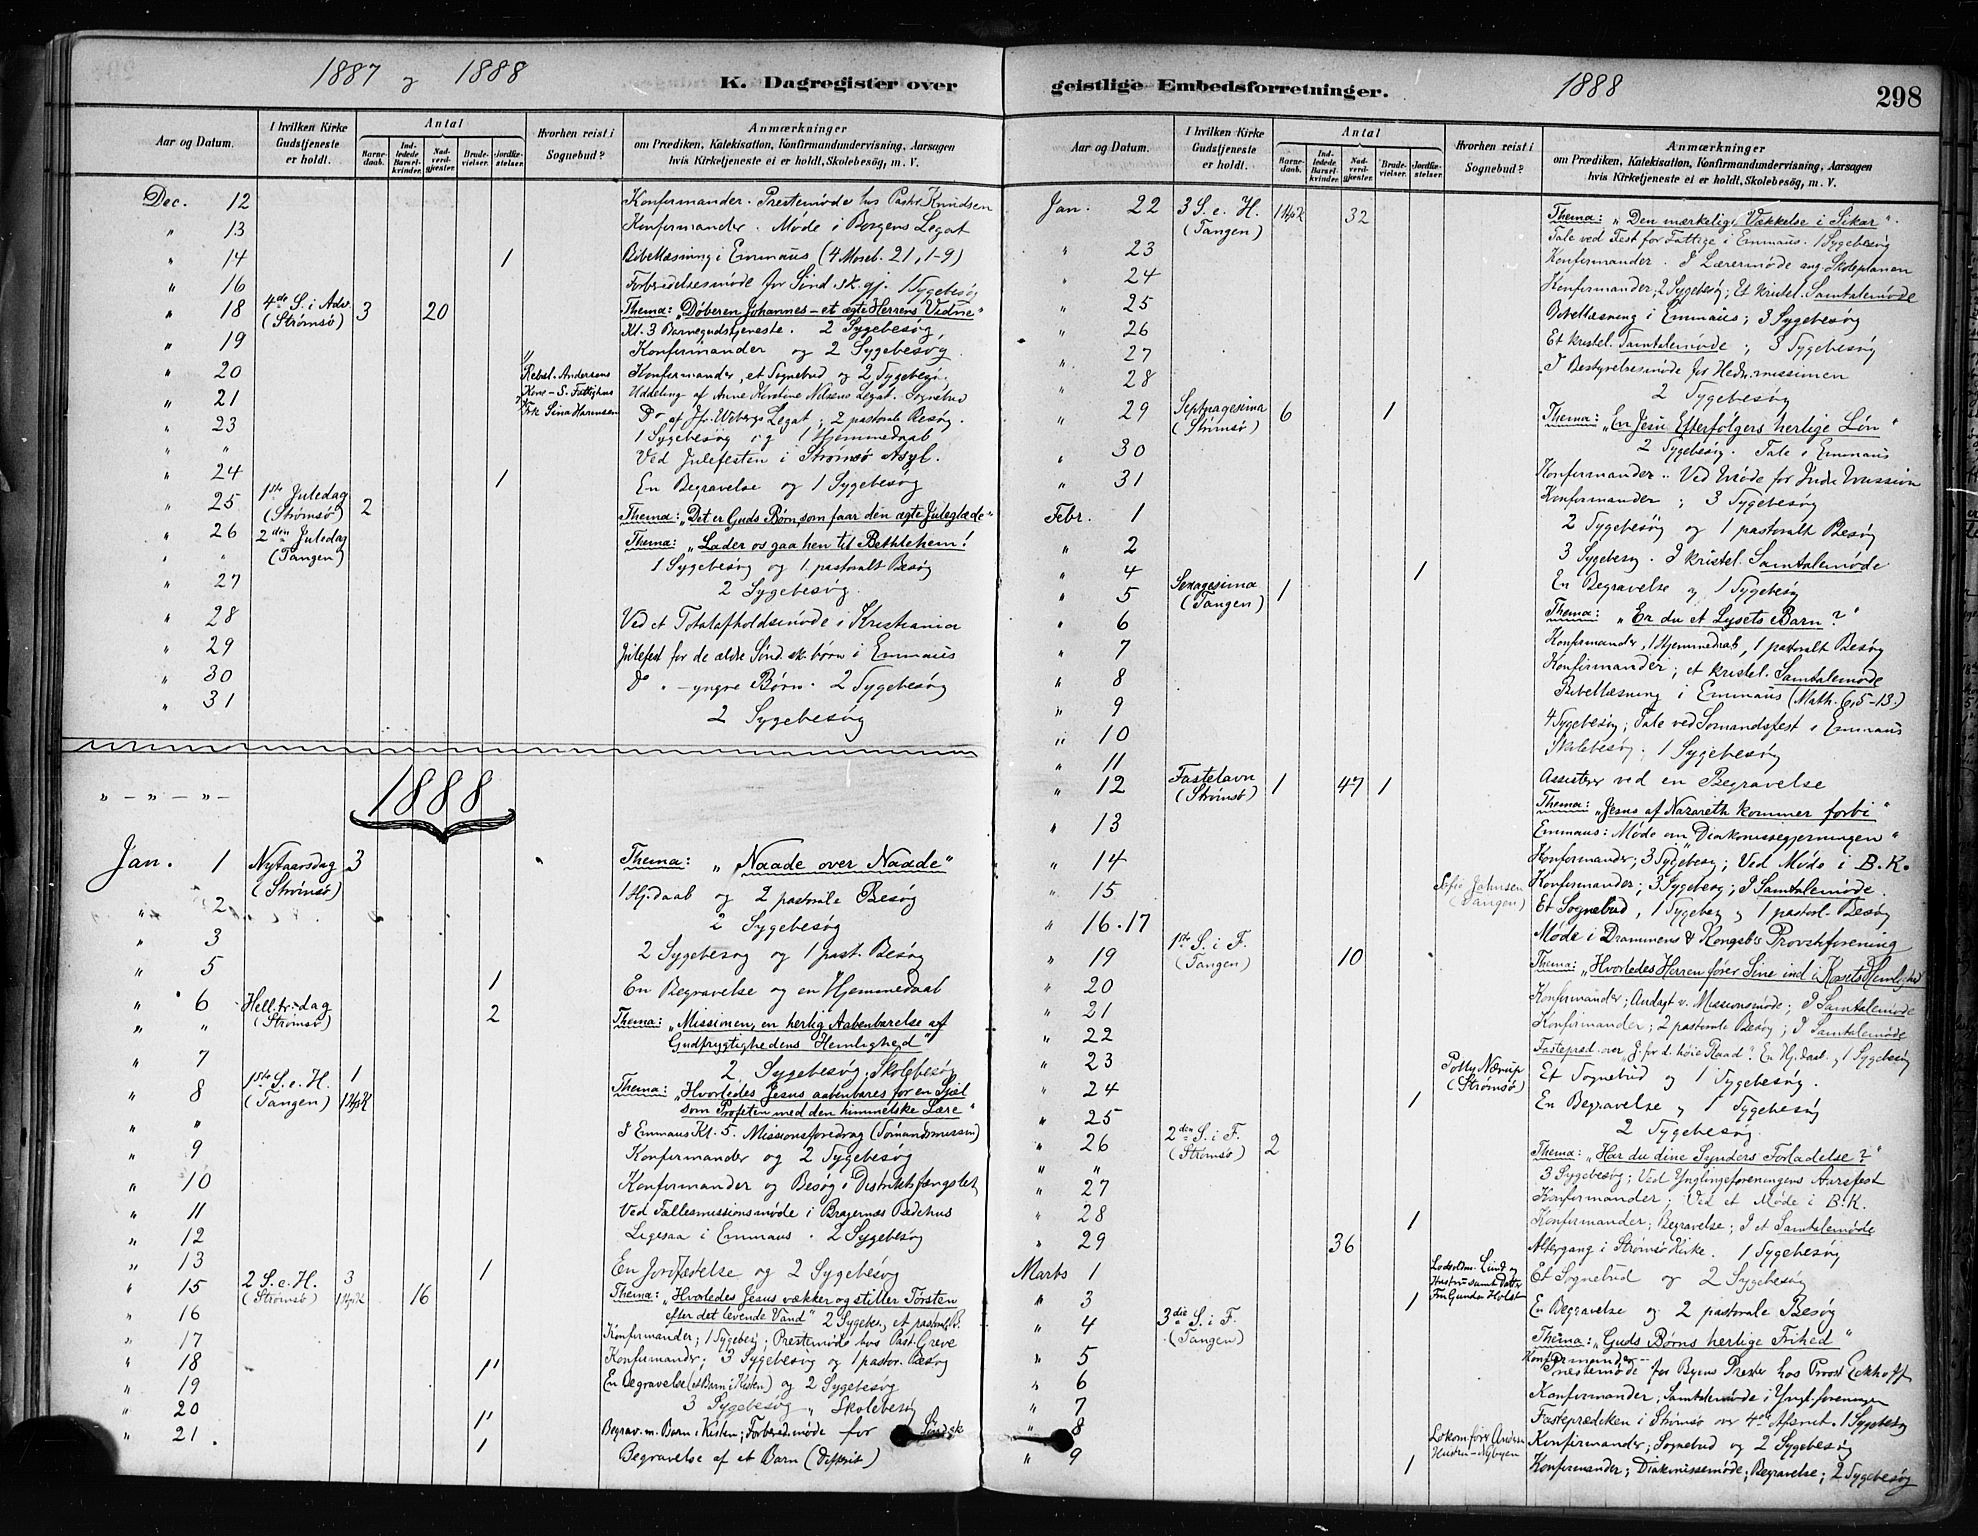 1887 og 1888
K. Dagregister over
Aar og Datum. I hvilken Kirke Gudstjeneste er holdt. Antal Barnedaab. Indledede Barselkvinder. Nadverdgjester. Brudevielser. Jordfæstelser. Hvorhen reist i Sognebud? Anmærkninger om Prædiken, Katekisation, Konfirmandundervisning, Aarsagen hvis Kirketjeneste ei er holdt, Skolebesøg, m. V.
Dec. 12 Konfirmander. Prestemøde hos Pastor Knudsen
" 13 Konfirmander. Møde i Borgens Legat
" 14 1 Bibellæsning i Emmaus (4 Moseb. 21, 1-9)
" 16 Forberedelsesmøde for Sønd.sk. gj. 1 Sygebesøg
" 18 4de S. i Adv. (Strømsø) 3 20 Thema: "Døberen Johannes – et ægte Herrens Vidne"
Kl. 3 Barnegudstjeneste. 2 Sygebesøg
" 19 Konfirmander og 2 Sygebesøg.
" 20 Andersens Kone – S. Fattighus Konfirmander, et Sognebud og 2 Sygebesøg.
" 21 Frk Sina Uddeling af Anne Kirstine Nilsens Legat. Sognebud
" 23 Do af Jfr. Webergs Legat; 2 pastorale Besøg.
1 Sygebesøg og 1 Hjemmedaab
" " Ved Julefesten i Strømsø Asyl.
" 24 1 En Begravelse og 1 Sygebesøg
" 25 1ste Juledag (Strømsø) 2 Thema: "Det er Guds Børn, som faar den ægte Juleglæde"
" 26 2den Juledag (Tangen) Thema: "Lader os gaa hen til Bethlehem!
" " 1 Sygebesøg og 1 pastoralt Besøg
" 27 2 Sygebesøg.
" 28 Ved et Totalafholdsmøde i Kristiania
" 29 Julefest for de ældre Sønd.sk.børn i Emmaus
" 30 Do " – yngre Børn. 2 Sygebesøg
" 31 2 Sygebesøg
" – " – " – 1888
Jan. 1 Nytaarsdag (Strømsø) 3 Thema: "Naade over Naade"
1 Hj.daab og 2 pastorale Besøg
" 2 2 Sygebesøg
" 3 2 Sygebesøg og 1 past. Besøg
" 5 1 En Begravelse og en Hjemmedaab
" 6 Hell.tr.dag (Strømsø) 2 Thema: "Missionen, en herlig Aabenbarelse af
" " Gudfrygtighedens Hemlighed"
" 7 2 Sygebesøg; Skolebesøg
" 8 1ste S. e. H. (Tangen) 1 1 Hjd Thema: "Hvorledes Jesus aabenbares for en Sjæl
som Profeten med den himmelske Lære"
" " I Emmaus Kl. 5. Missionsforedrag (Sømandsmission)
" 9 Konfirmander og 2 Sygebesøg
" 10 Konfirmander og Besøg i Distriktsfængslet
" 11 Ved Fællesmissionsmøde i Bragernæs Bedehus
" 12 Ligesaa i Emmaus. 2 Sygebesøg
" 13 1 En Jordfæstelse og 2 Sygebesøg
" 15 2 S. e. H. (Strømsø) 3 16 Thema: "Hvorledes Jesus vækker og stiller Tørsten
efter det levende Vand" 2 Sygebes., et pastoralt B.
" 16 Konfirmander; 1 Sygebesøg; Prestemøde hos Past. Greve
" 17 Konfirmander; 3 Sygebesøg og 1 pastor. Besøg
" 18 1 En Begravelse (et Barn i Kisten) og 2 Sygebesøg
" 19 3 Sygebesøg " Skolebesøg
" 20 1 Begrav. m. Barn i Kisten; Forbered.møde for Sønd.sk
" 21. 1 Begravelse af et Barn (Difterit)
geistlige Embedsforretninger.
1888
298
Aar og Datum. I hvilken Kirke Gudstjeneste er holdt. Antal Barnedaab. Indledede Barselkvinder. Nadverdgjester. Brudevielser. Jordfæstelser. Hvorhen reist i Sognebud? Anmærkninger om Prædiken, Katekisation, Konfirmandundervisning, Aarsagen hvis Kirketjeneste ei er holdt, Skolebesøg, m. V.
Jan. 22 3 S. e. H. (Tangen) 1 32 Thema: "Den mærkelige Vækkelse i Sikar".
Tale ved Fest for Fattige i Emmaus. 1 Sygebesøg
" 23 Konfirmander. I Lærermøde ang. Skoleplanen
" 24 Konfirmander, 2 Sygebesøg; Et kristel. Samtalemøde
" 25 Bibellæsning i Emmaus; 3 Sygebesøg
" 26 Et kristel. Samtalemøde; 3 Sygebesøg
" 27 I Bestyrelsesmøde for Hedn.missionen
" 28 2 Sygebesøg
" 29 Septuagesima (Strømsø) 6 1 Thema: "En Jesu Efterfølgers herlige Løn"
2 Sygebesøg. Tale i Emmaus
" 30 Konfirmander. Ved Møde for Indre Mission
" 31 Konfirmander; 3 Sygebesøg
Febr. 1 2 Sygebesøg og 1 pastoralt Besøg
" 2 3 Sygebesøg. I kristel. Samtalemøde
" 4 1 En Begravelse og 1 Sygebesøg
" 5 Sexagesima (Tangen) 1 Thema: "Er du et Lysets Barn?"
" 6 Konfirmander, 1 Hjemmedaab, 1 pastoralt Besøg
" 7 Konfirmander; et kristel. Samtalemøde
" 8 Bibellæsning i Emmaus (Math. 6, 5-13.)
" 9 4 Sygebesøg; Tale ved Sømandsfest i Emmaus
" 10 Skolebesøg. 1 Sygebesøg
" 11 Assisterer ved en Begravelse
" 12 Fastelavn (Strømsø) 1 47 1 Thema: "Jesus af Nazareth kommer forbi"
" 13 Emmaus: Møde om "Diakonissegjerningen"
" 14 Konfirmander; 3 Sygebesøg; Ved Møde i B.K.
" 15 Sofie Johnsen (Tangen) Konfirmander; 3 Sygebesøg; I Samtalemøde.
Et Sognebud, 1 Sygebesøg og 1 pastoral. Besøg
" 16.17 Møde i Drammens & Kongsb's Provstiforening
" 19 1ste S. i F. (Tangen) 10 Thema: "Hvorledes Herren fører Sine ind i Korsets Hemlighed
" 20 Konfirmander; Andagt v. Missionsmøde; I Samtalemøde
" 21 Konfirmander; 2 pastorale Besøg; I Samtalemøde
" 22 Fastepræd. over J. for d. høie Raad? En Hj.daab og 1 Sygebesøg
" 23 Nærup (Strømsø) Et Sognebud og 1 Sygebesøg.
" 24 1 En Begravelse og 1 Sygebesøg
" 25 2 Sygebesøg.
" 26 2den S. i F. (Strømsø) 2 Thema: "Har du dine Synders Forladelse?"
" " 3 Sygebesøg; Ved Ynglingeforeningens Aarsfest
" 27 Konfirmander; Ved et Møde i B.K.
" 28 1 Konfirmander; Begravelse; I et Samtalemøde
" 29 36 Altergang i Strømsø Kirke. 1 Sygebesøg
Marts 1 Lods Lind og Hustru samt Datter Et Sognebud og 2 Sygebesøg
" 3 1 Fru Gunda Holst En Begravelse og 2 pastorale Besøg
" 4 3die S. i F. (Tangen) Thema: "Guds Børns herlige Frihed"
" 5 Konfirmander – Prestemøde for Byens Prester hos Provst Eckhoff
" 6 Konfirmander; Samtalemøde i Yngl.foreningen
" 7 Fasteprædiken i Strømsø over 4de Afsnit. 1 Sygebesøg
" 8 Lokomfører Hustru – Nybyen Konfirmander; Sognebud og 2 Sygebesøg
" 9 1 Konfirmander; Diakonissemøde; Begravelse; 2 Sygebesøg